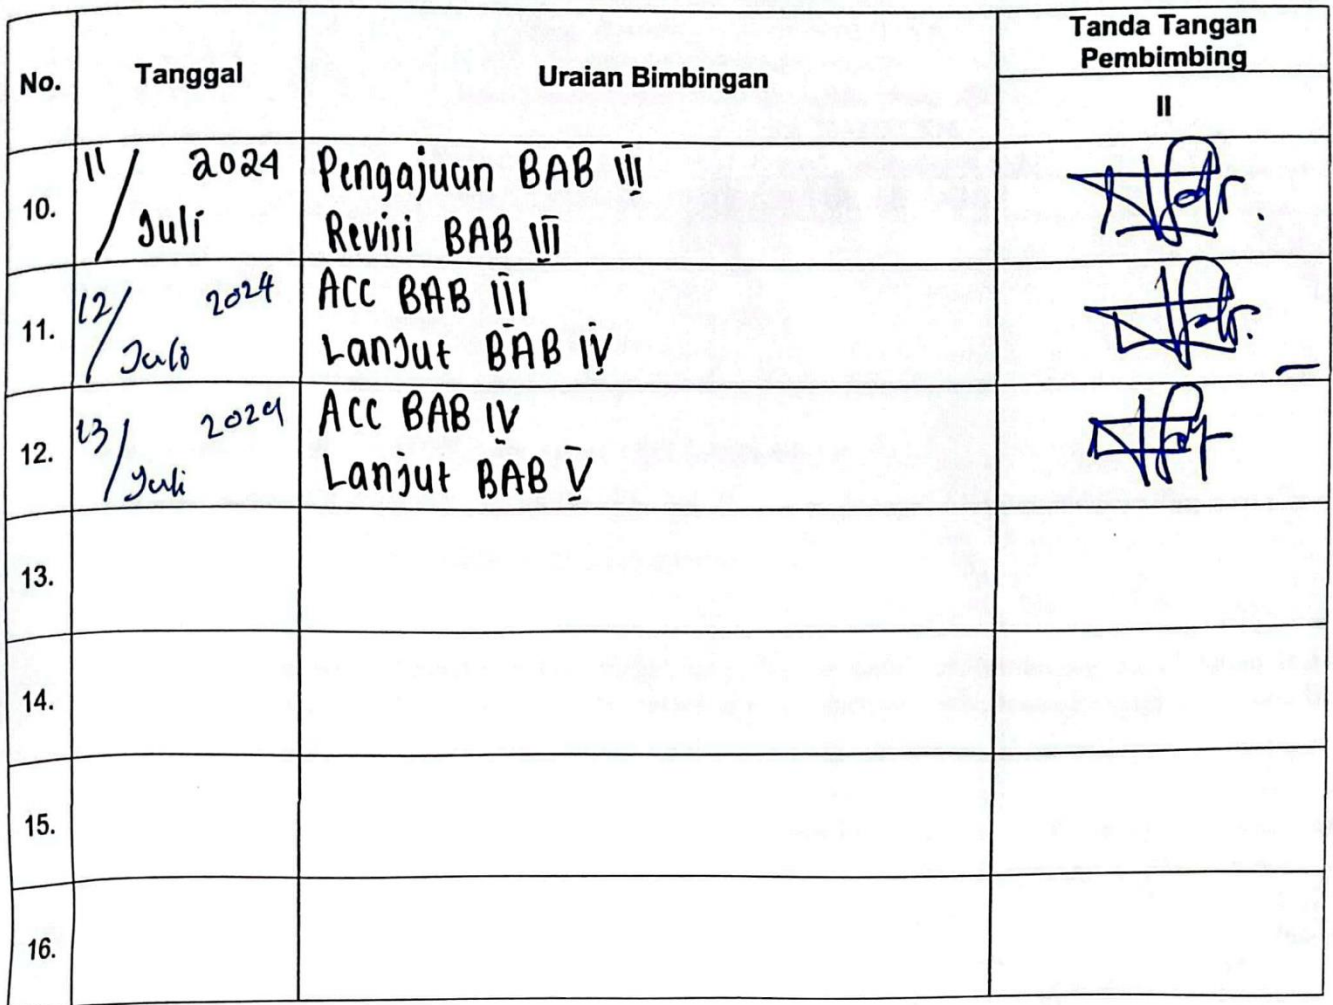 No. Tanggal Uraian Bimbingan Tanda Tangan
Pembimbing
II
10. 11/ 2024 Pengajuan BAB III
Juli Revisi BAB III
11. 12/ 2024 ACC BAB III
Juli Lanjut BAB IV
12. 13/ 2024 Acc BAB IV
Juli Lanjut BAB V
13.
14.
15.
16.